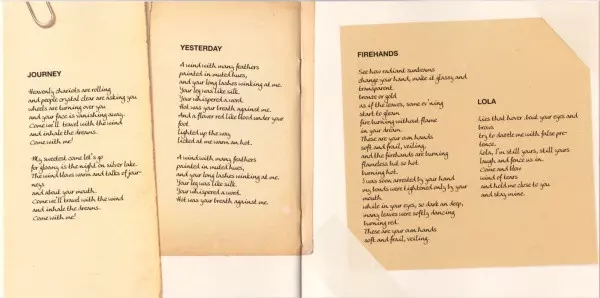 JOURNEY
Heavenly chariots are rolling
and people crystal clear are asking you
wheels are turning over you
and your face is vanishing away.
Come we'll travel with the wind
and inhale the dreams.
Come with me!
My sweetest come let's go
for gloamy is the night on silver lake.
The wind blows warm and talks of jour-
neys
and about your mouth.
Come we'll travel with the wind
and inhale the dreams.
Come with me!
YESTERDAY
A wind with many feathers
painted in muted hues,
and your long lashes winking at me.
Your leg was like silk.
Your whispered a word.
Hot was your breath against me.
And a flower red like blood under your
foot
lighted up the way,
licked at me warm an hot.
A wind with many feathers
painted in muted hues,
and your long lashes winking at me.
Your leg was like silk.
Your whispered a word.
Hot was your breath against me.
FIREHANDS
See how radiant sunbeams
change your hand, make it glassy and
transparent
bronze or gold
as if the leaves, same evening
start to gleam
fire burning without flame
in your dream.
These are your own hands
soft and frail, veiling,
and the firehands are burning
flameless but so hot
burning hot.
I was soon arrested by your hand
my bonds were tightened only by your
mouth.
while in your eyes, so dark an deep,
many leaves were softly dancing
burning red.
These are your own hands
soft and frail, veiling.
LOLA
Lies that hover your eyes and
brows
try to dazzle me with false pre-
tence.
Lola, I'm still yours, still yours
laugh and force us in.
Come and blow
wind of tears
and hold me close to you
and stay mine.